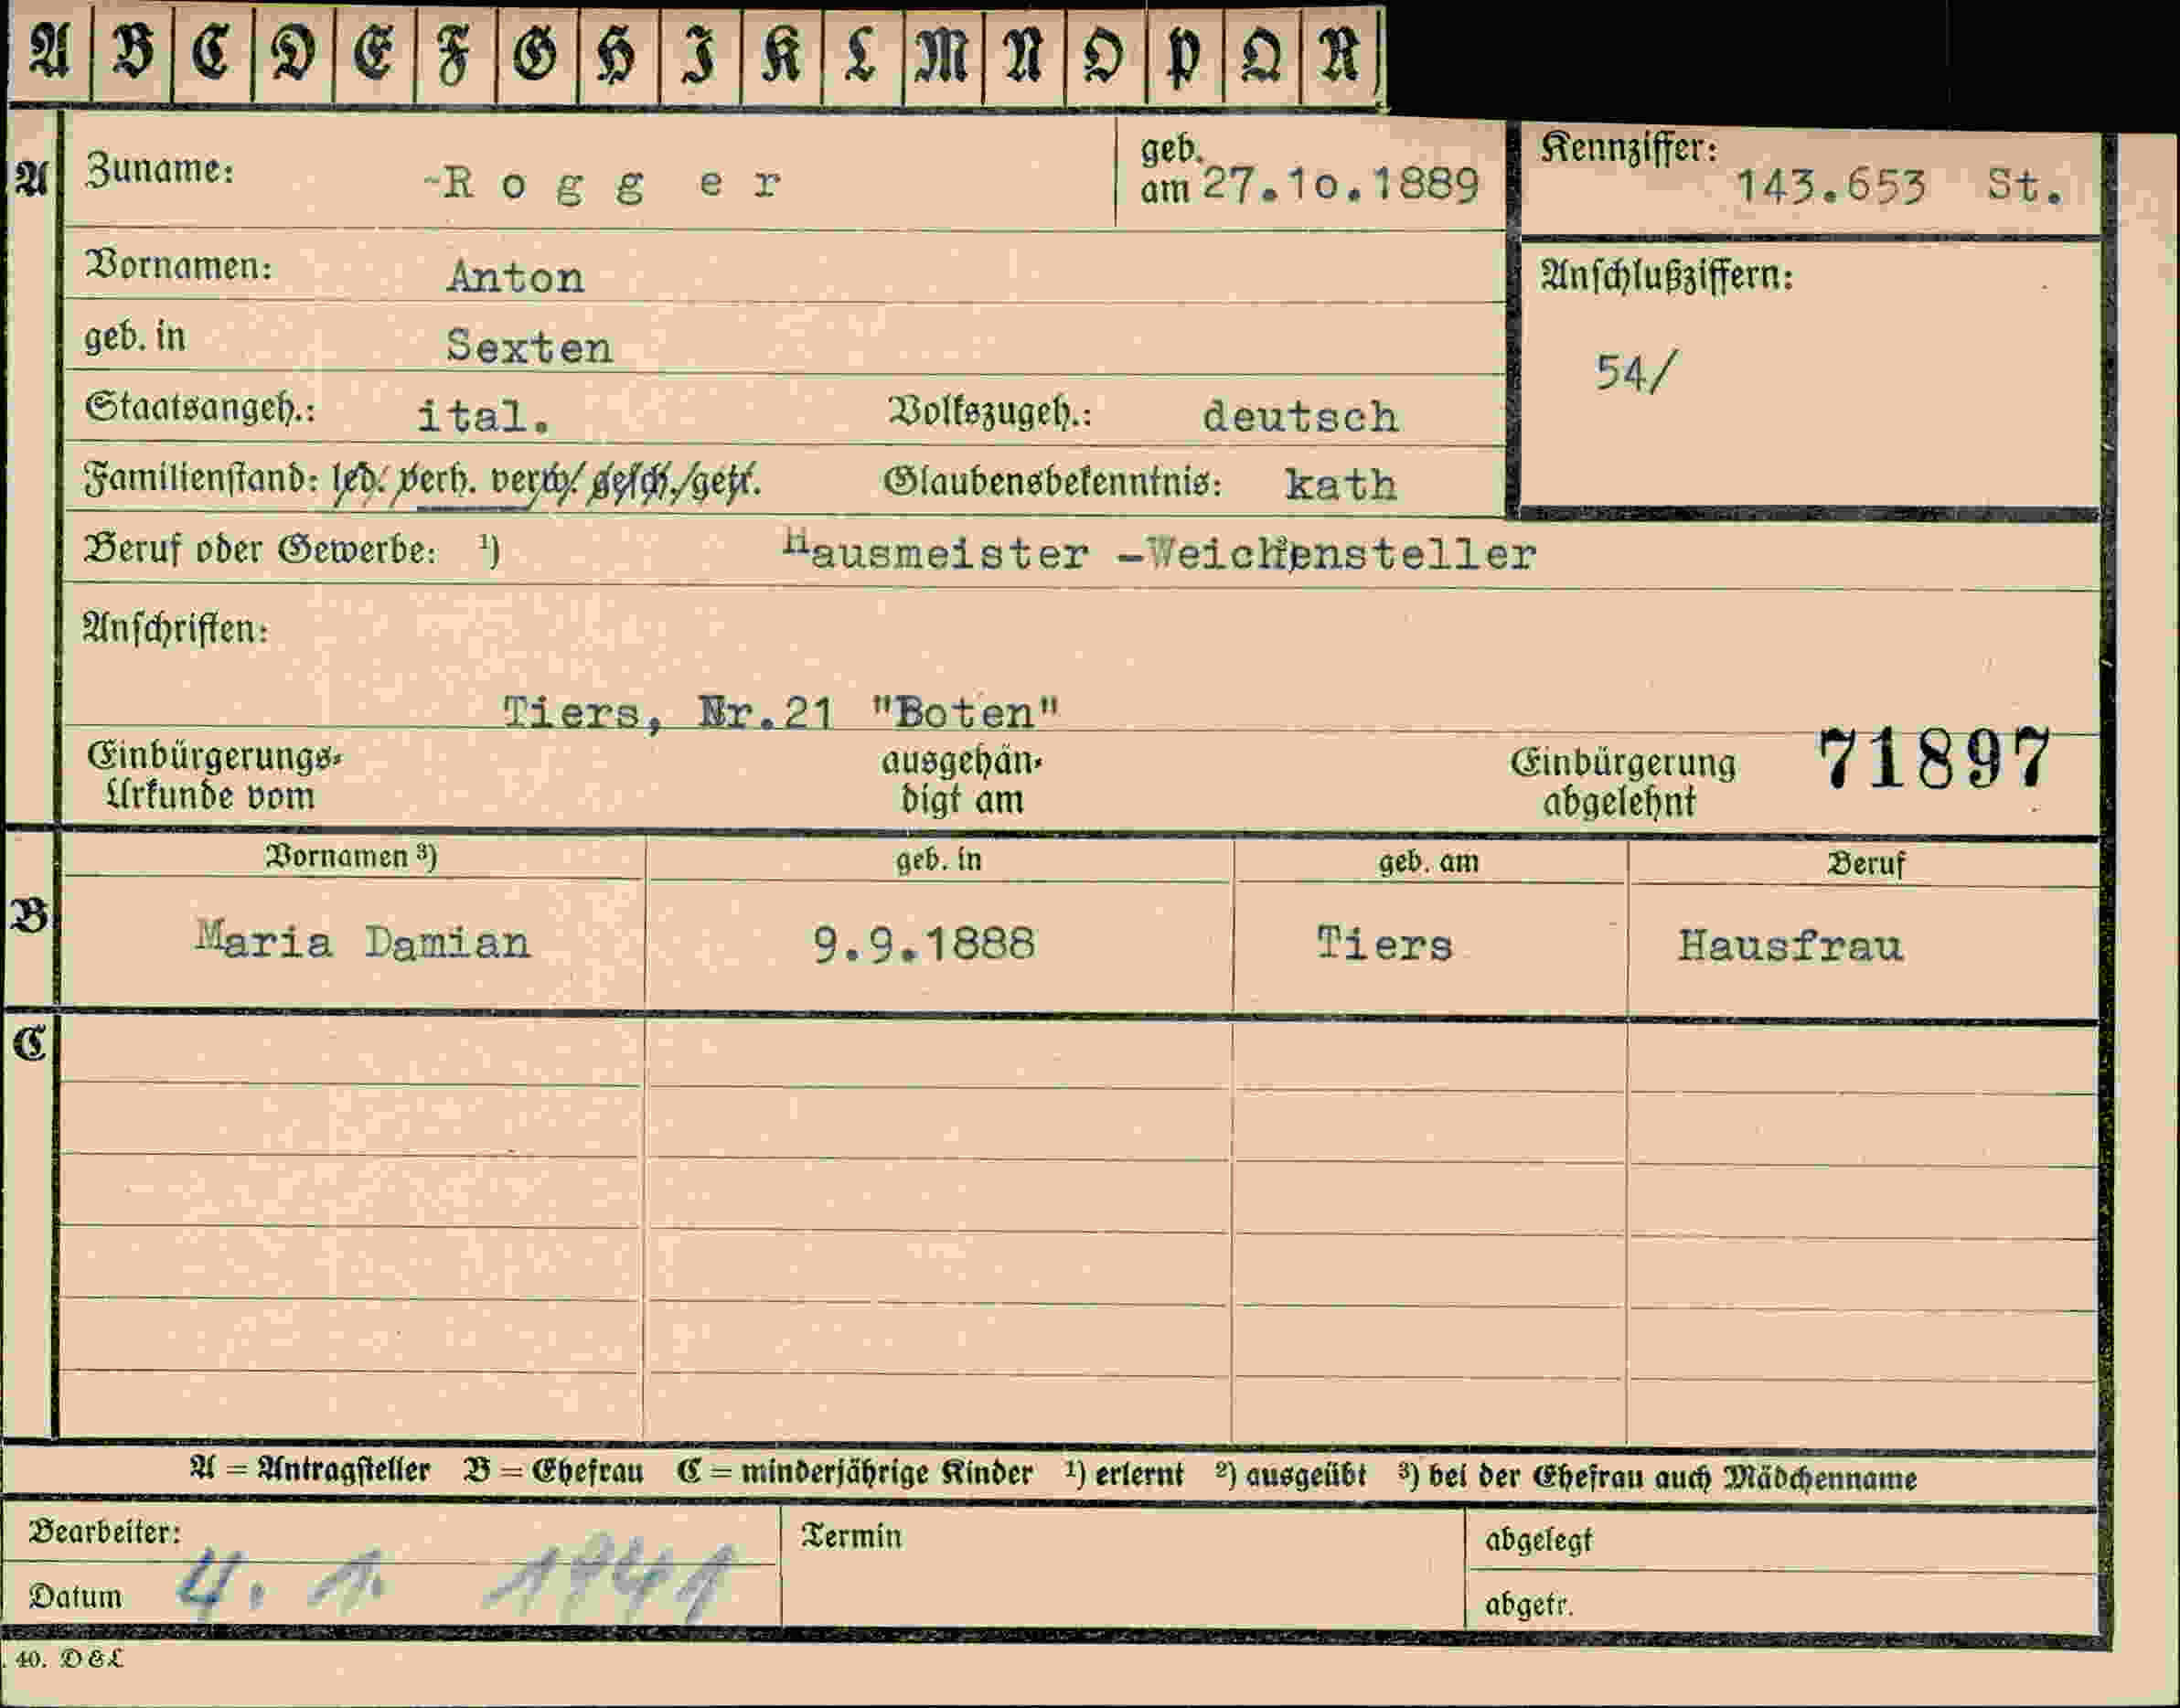 A B C D E F G H I K L M N O P Q R
A
Zuname: -R o g g e r
geb. am 27.10.1889
Kennziffer: 143.653 St.
Vornamen: Anton
Anschlußziffern:
geb. in Sexten
54/
Staatsangeh.: ital. Volkszugeh.: deutsch
Familienstand: led./verh. verw./gesch./getr. Glaubensbekenntnis: kath
Beruf oder Gewerbe: ¹) Hausmeister -Weichensteller
Anschriften:
Tiers, Nr.21 "Boten"
Einbürgerungs-
Urkunde vom
ausgehän-
digt am
Einbürgerung
abgelehnt
71897
B
Vornamen ³) geb. in geb. am Beruf
Maria Damian 9.9.1888 Tiers Hausfrau
C
A = Antragsteller B = Ehefrau C = minderjährige Kinder ¹) erlernt ²) ausgeübt ³) bei der Ehefrau auch Mädchenname
Bearbeiter: Termin abgelegt
Datum 4. 1. 1941 abgetr.
40. D&L